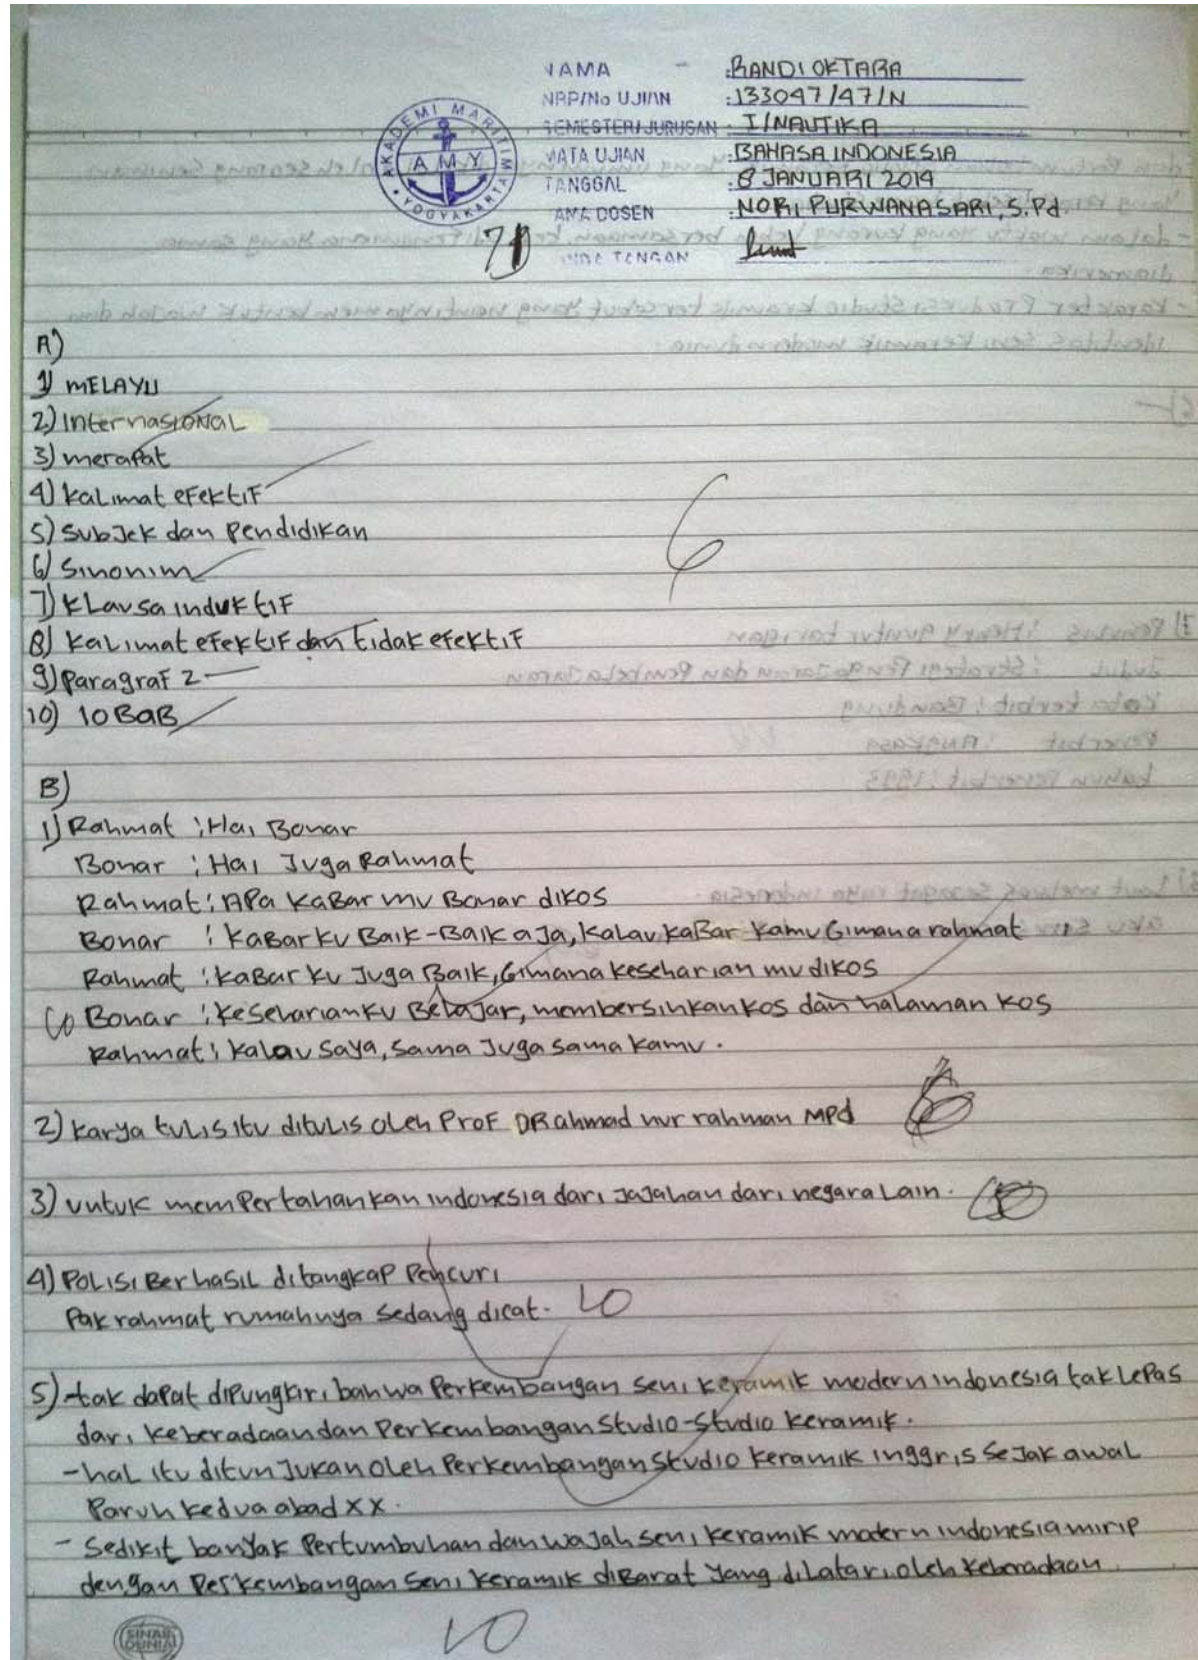 NAMA : RANDI OKTARA
NRP/No UJIAN : 133047/47/N
SEMESTER/JURUSAN : I/NAUTIKA
MATA UJIAN : BAHASA INDONESIA
TANGGAL : 8 JANUARI 2014
NAMA DOSEN : NORI PURWANASARI, S.Pd.
TANDA TANGAN
AKADEMI MARITIM
A M Y
YOGYAKARTA
A)
1) MELAYU
2) Internasional
3) merapat
4) kalimat efektif
5) Subjek dan Pendidikan
6) Sinonim
6
7) Klausa induktif
8) kalimat efektif dan tidak efektif
9) Paragraf 2
10) 10 BAB
B)
1) Rahmat : Hai Bonar
Bonar : Hai Juga Rahmat
Rahmat : Apa kabar mu Bonar dikos
Bonar : kabar ku Baik-Baik aja, kalau kabar kamu Gimana rahmat
Rahmat : kabar ku Juga Baik, Gimana keseharian mu dikos
10 Bonar : keseharianku Belajar, membersihkan kos dan halaman kos
Rahmat : kalau saya, sama Juga sama kamu.
2) karya tulis itu ditulis oleh Prof DR ahmad nur rahman MPd
3) untuk memPertahankan indonesia dari jajahan dari negara Lain.
4) Polisi Berhasil ditangkap Pencuri
Pak rahmat rumahnya sedang dicat. 10
5) -tak dapat dipungkiri bahwa Perkembangan seni keramik modern indonesia tak lepas
dari keberadaan dan Perkembangan Studio-Studio keramik.
-hal itu ditunjukan oleh Perkembangan Studio keramik inggris sejak awal
Paruh kedua abad XX.
- Sedikit banyak Pertumbuhan dan wajah seni keramik modern indonesia mirip
dengan Perkembangan seni keramik diBarat yang dilatari oleh keberadaan
10
SINAR
DUNIA